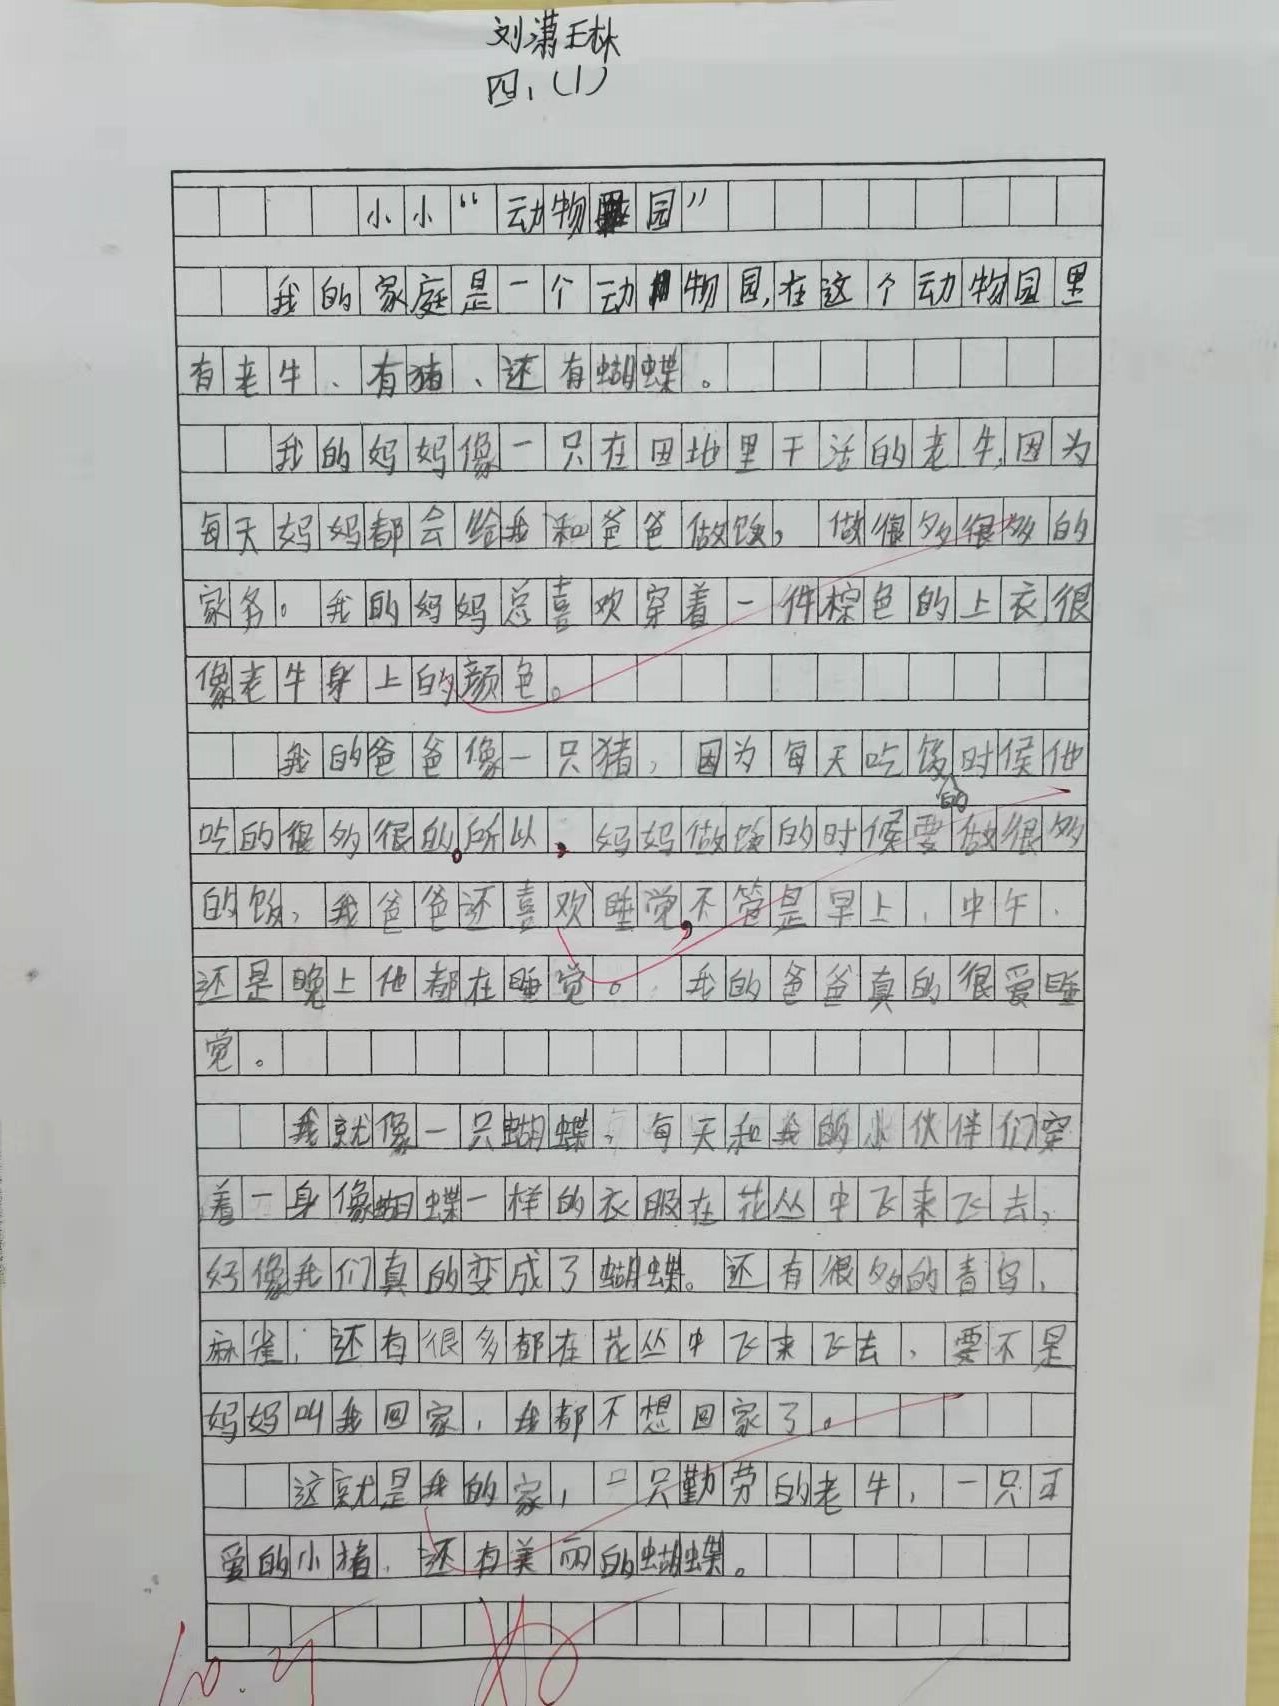 刘潇王林
四,(1)
小小“动物园”
我的家庭是一个动物园,在这个动物园里
有老牛、有猪、还有蝴蝶。
我的妈妈像一只在田地里干活的老牛,因为
每天妈妈都会给我和爸爸做饭,做很多很多的
家务。我的妈妈总喜欢穿着一件棕色的上衣,很
像老牛身上的颜色。
我的爸爸像一只猪,因为每天吃饭的时候他
吃的很多很的。所以,妈妈做饭的时候要做很多
的饭,我爸爸还喜欢睡觉,不管是早上、中午、
还是晚上他都在睡觉。我的爸爸真的很爱睡
觉。
我就像一只蝴蝶,每天和我的小伙伴们穿
着一身像蝴蝶一样的衣服在花丛中飞来飞去,
好像我们真的变成了蝴蝶。还有很多的青鸟、
麻雀,还有很多都在花丛中飞来飞去,要不是
妈妈叫我回家,我都不想回家了。
这就是我的家,一只勤劳的老牛,一只可
爱的小猪,还有美丽的蝴蝶。